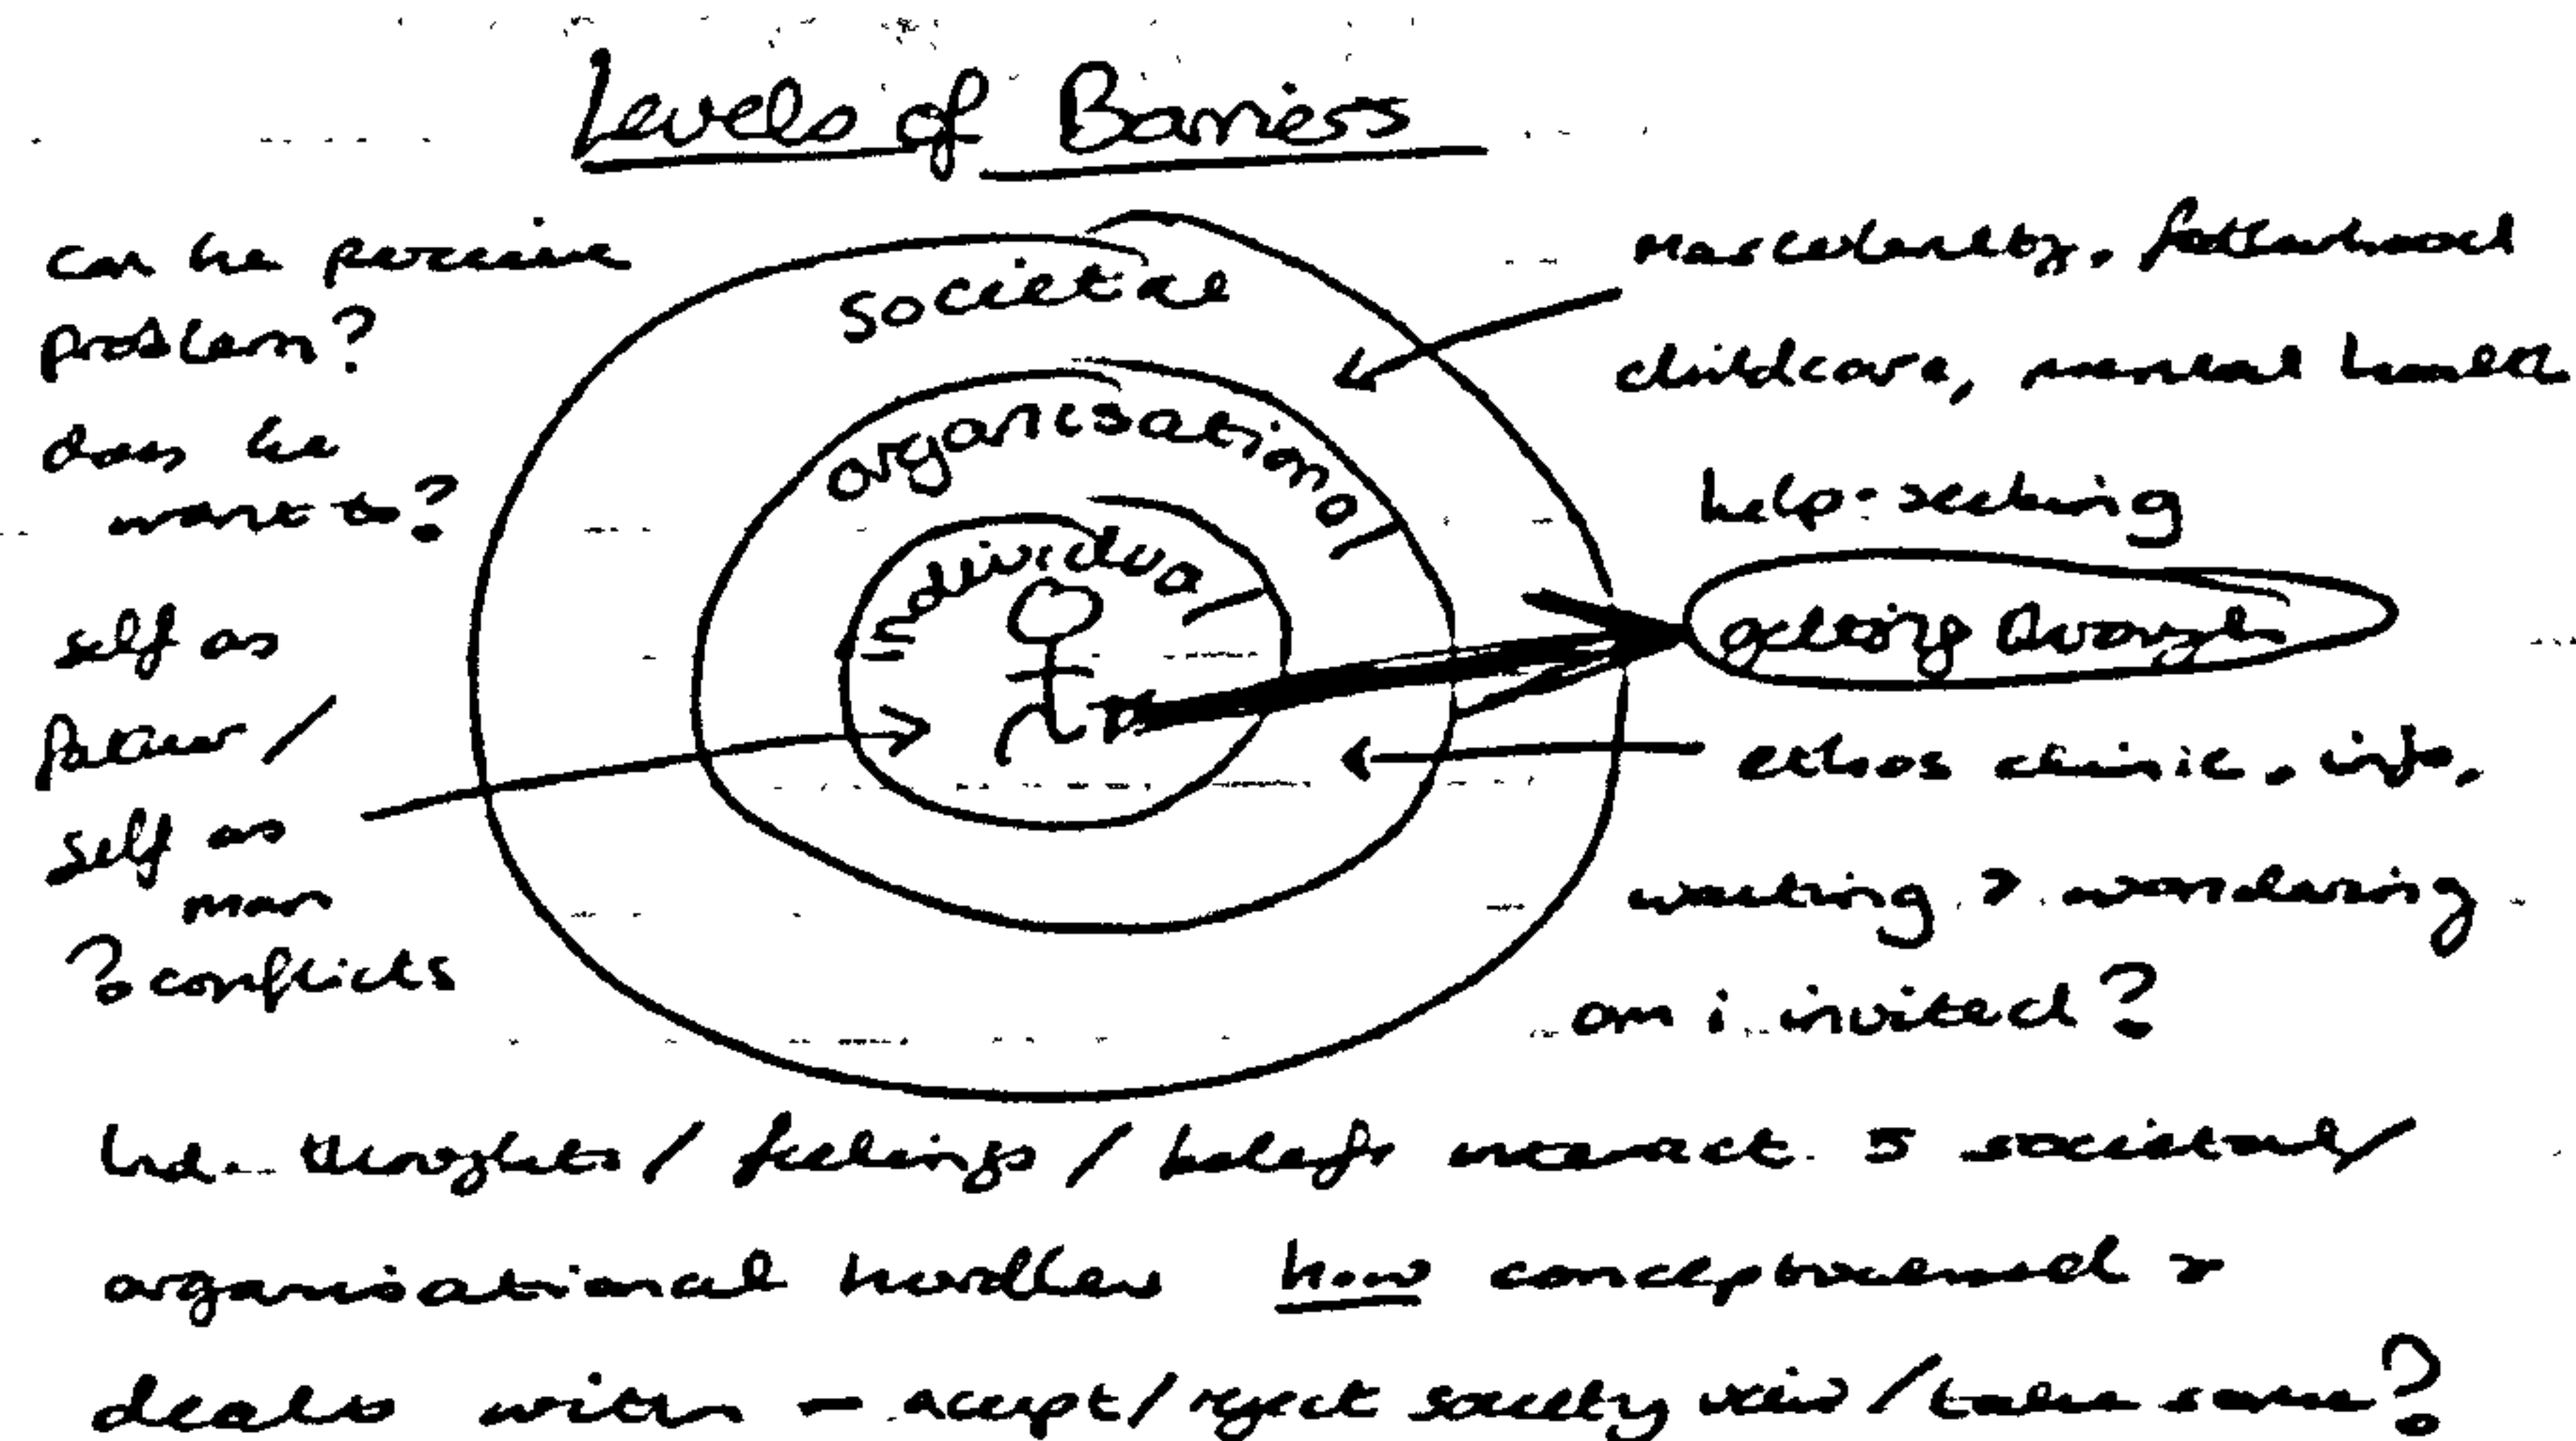 Levels of Barriers
can he perceive
problem?
does he
want to?
self as
father /
self as
man
? conflicts
societal
organisational
individual
masculinity, fatherhood
childcare, mental health
help-seeking
getting through
ethos clinic, info,
waiting & wondering
am i invited?
Ind. thoughts / feelings / beliefs interact c̄ societal /
organisational hurdles how conceptualised &
dealt with – accept / reject society view / take some?